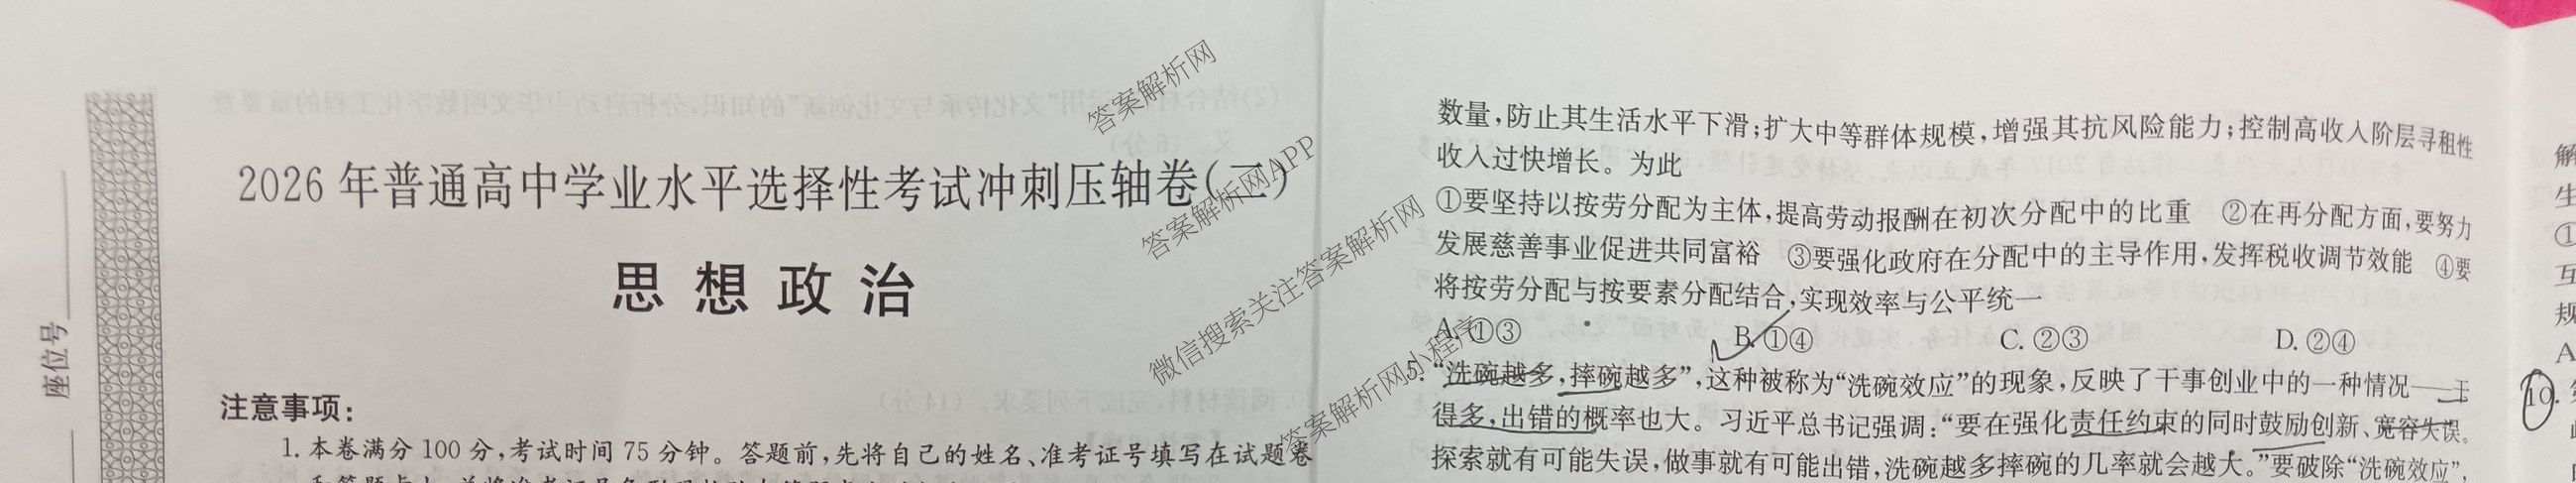 座位号
2026年普通高中学业水平选择性考试冲刺压轴卷(三)
思想政治
注意事项:
1.本卷满分100分,考试时间75分钟。答题前,先将自己的姓名、准考证号填写在试题卷
数量,防止其生活水平下滑;扩大中等群体规模,增强其抗风险能力;控制高收入阶层寻租性
收入过快增长。为此
①要坚持以按劳分配为主体,提高劳动报酬在初次分配中的比重 ②在再分配方面,要努力
发展慈善事业促进共同富裕 ③要强化政府在分配中的主导作用,发挥税收调节效能 ④要
将按劳分配与按要素分配结合,实现效率与公平统一
A.①③ B.①④ C.②③ D.②④
5.“洗碗越多,摔碗越多”,这种被称为“洗碗效应”的现象,反映了干事创业中的一种情况——干
得多,出错的概率也大。习近平总书记强调:“要在强化责任约束的同时鼓励创新、宽容失误。
探索就有可能失误,做事就有可能出错,洗碗越多摔碗的几率就会越大。”要破除“洗碗效应”,
解
生
①
互
规
A
10.
答案解析网
答案解析网APP
微信搜索关注答案解析网
答案解析网小程序